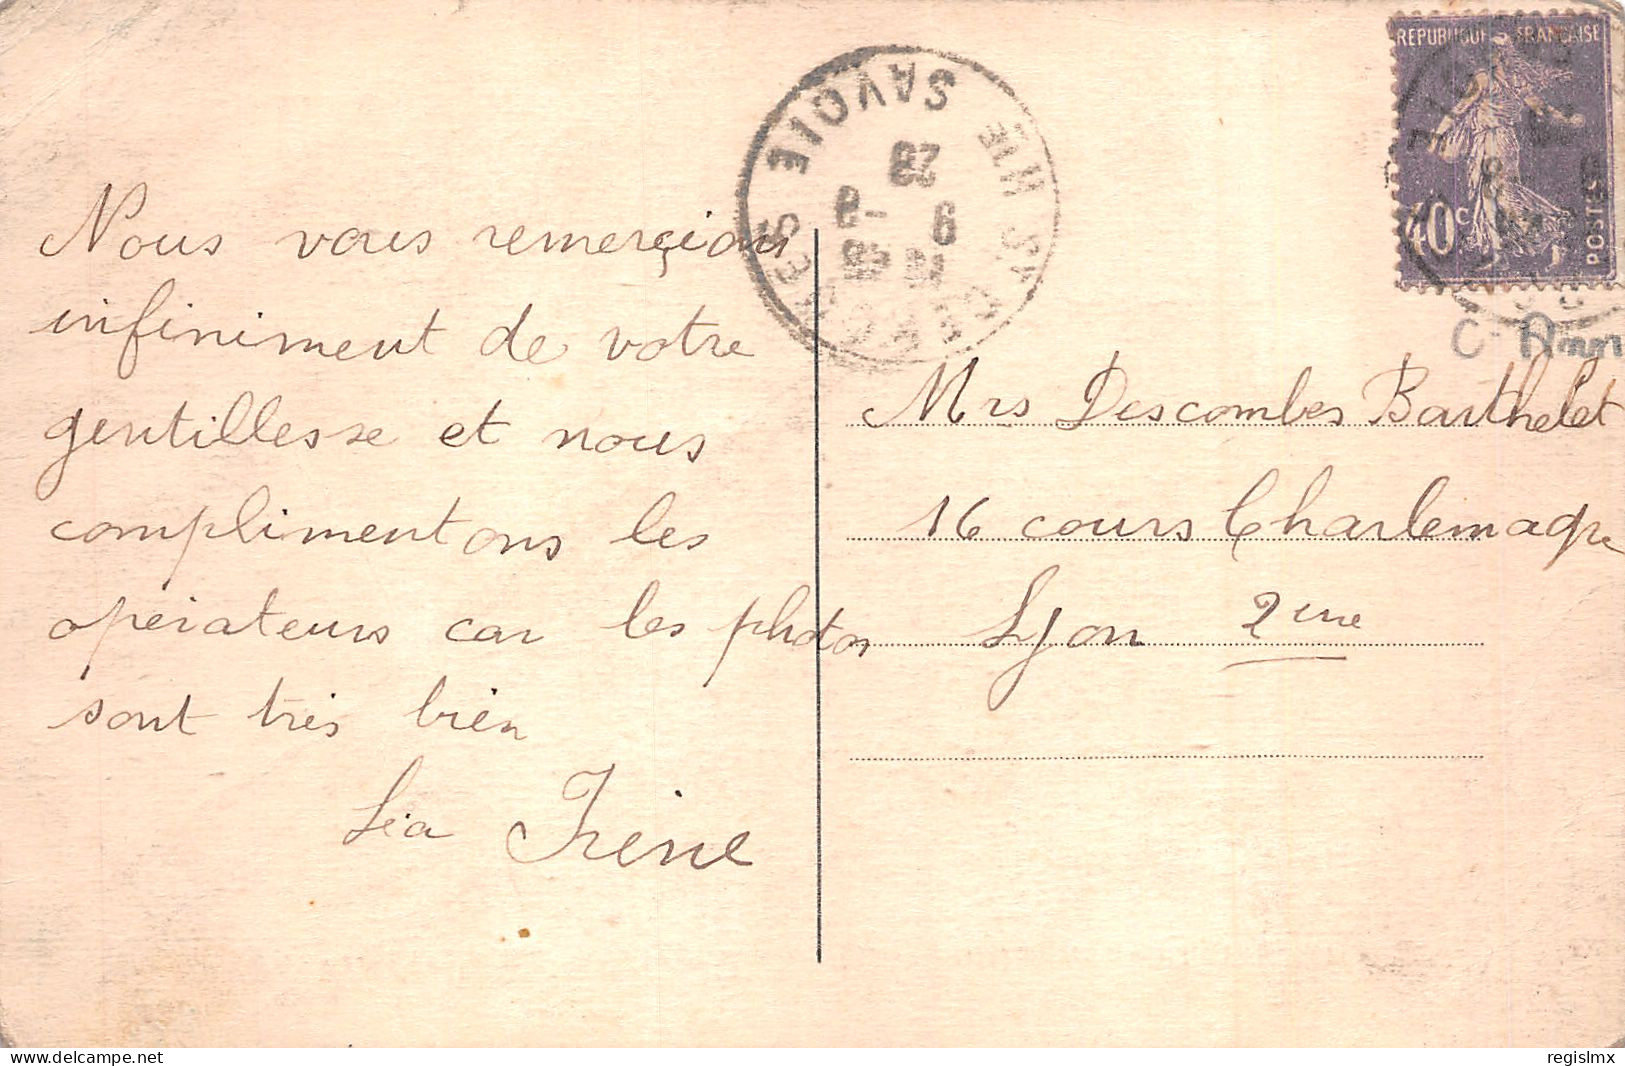 Nous vous remerçions
infiniment de votre
gentillesse et nous
complimentons les
opérateurs car les photos
sont très bien
Léa Irène
SAVOIE
HTE
28
9
-8
REPUBLIQUE FRANCAISE
40c
POSTES
C- Ann
Mrs Descombes Barthelet
16 cours Charlemagne
Lyon 2eme
regislmx